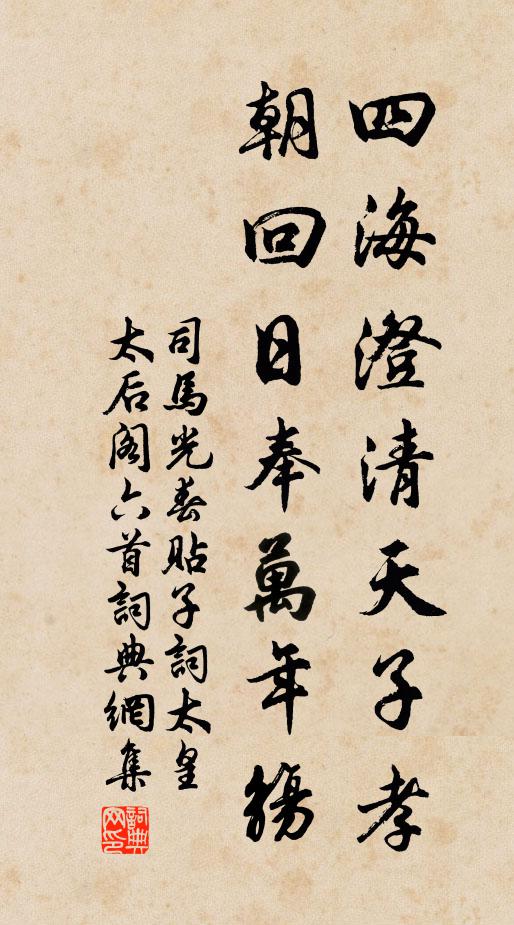 四海澄清天子孝
朝回日奉萬年觴
司馬光春貼子詞太皇
太后閣六首詞典網集
詞典网印